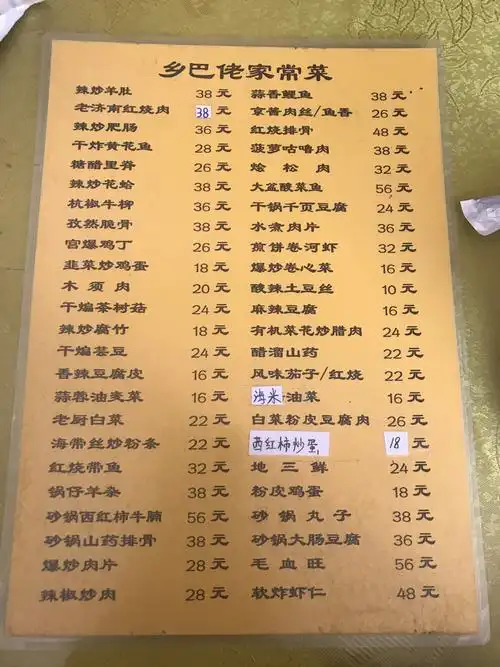 乡巴佬家常菜
辣炒羊肚 38元 蒜香鲤鱼 38元
老济南红烧肉 38元 京酱肉丝/鱼香 26元
辣炒肥肠 36元 红烧排骨 48元
干炸黄花鱼 28元 菠萝咕咾肉 38元
糖醋里脊 26元 烩松肉 32元
辣炒花蛤 38元 大盆酸菜鱼 56元
杭椒牛柳 36元 干锅千页豆腐 24元
孜然脆骨 38元 水煮肉片 36元
宫爆鸡丁 26元 煎饼卷河虾 32元
韭菜炒鸡蛋 18元 爆炒卷心菜 16元
木须肉 20元 酸辣土豆丝 10元
干煸茶树菇 24元 麻辣豆腐 16元
辣炒腐竹 18元 有机菜花炒腊肉 24元
干煸芸豆 24元 醋溜山药 22元
香辣豆腐皮 16元 风味茄子/红烧 22元
蒜蓉油麦菜 16元 海米油菜 16元
老厨白菜 22元 白菜粉皮豆腐肉 26元
海带丝炒粉条 22元 西红柿炒蛋 18元
红烧带鱼 32元 地三鲜 24元
锅仔羊杂 38元 粉皮鸡蛋 18元
砂锅西红柿牛腩 56元 砂锅丸子 38元
砂锅山药排骨 38元 砂锅大肠豆腐 36元
爆炒肉片 28元 毛血旺 56元
辣椒炒肉 28元 软炸虾仁 48元